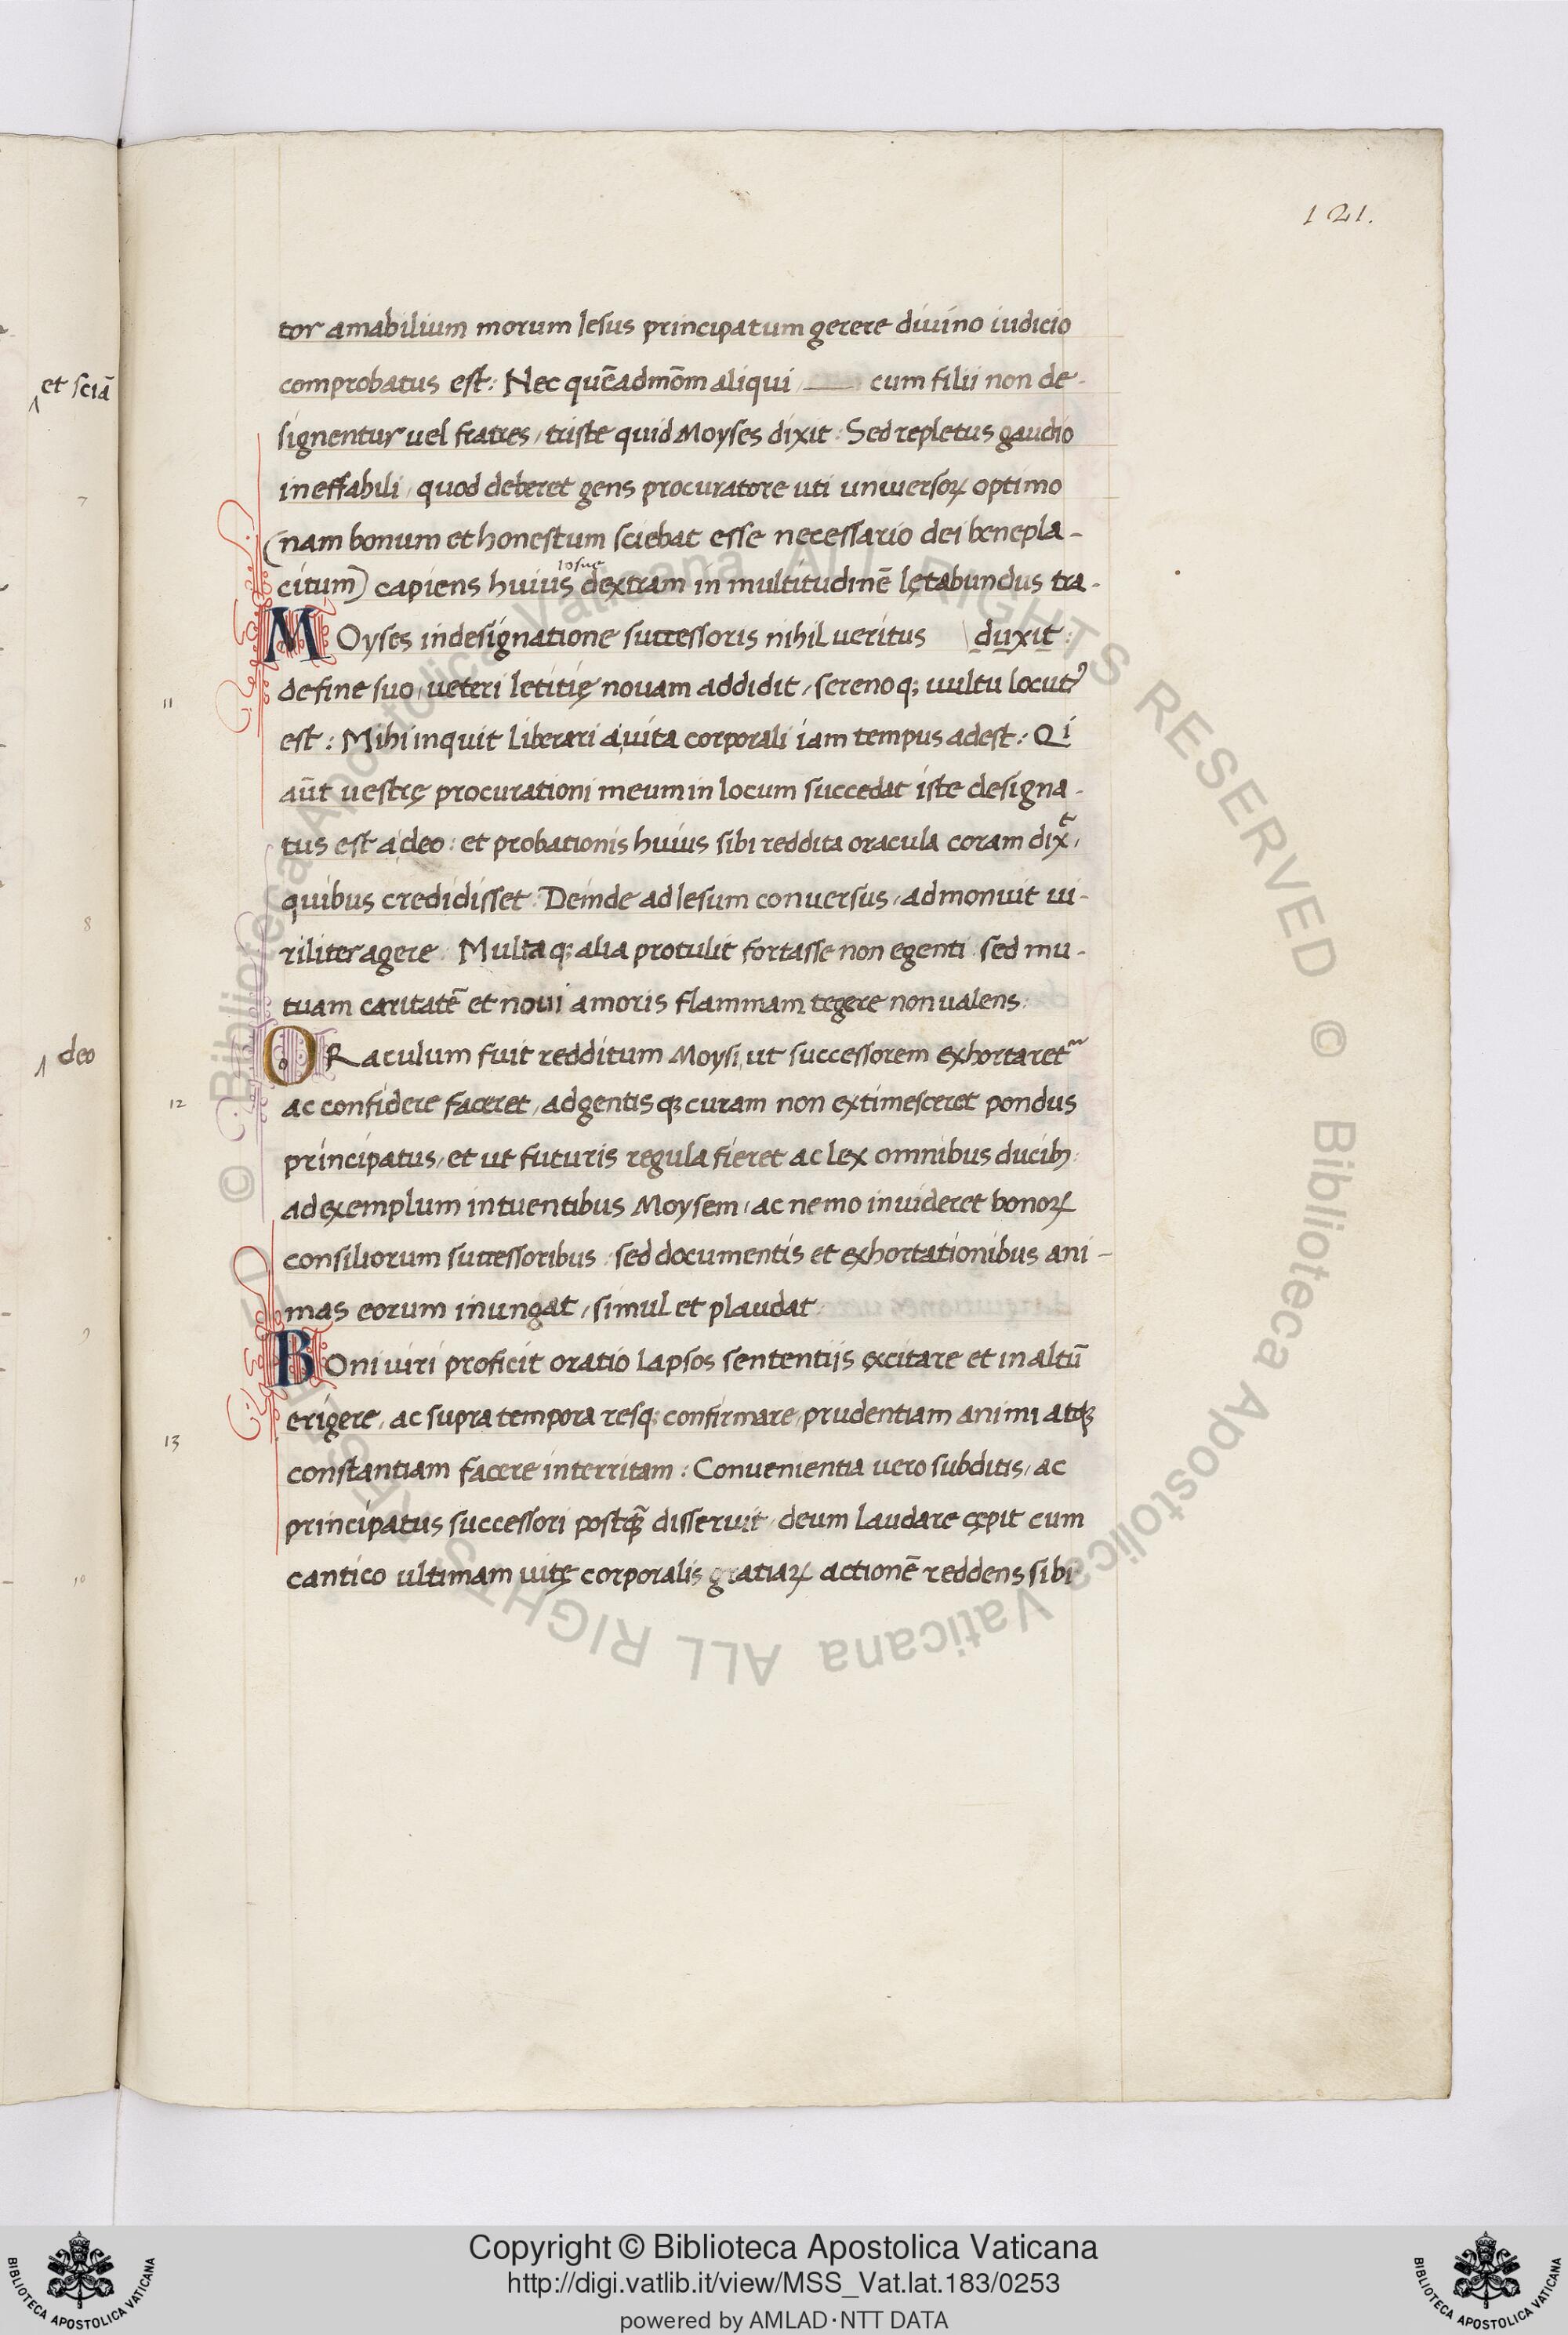 121.
et sciā
tor amabilium morum Iesus principatum gerere diuino iudicio
comprobatus est: Nec quēadmōm aliqui cum filii non de-
signentur uel fratres, triste quid Moyses dixit: Sed repletus gaudio
ineffabili, quod deberet gens procuratore uti uniuersoꝝ optimo
(nam bonum et honestum sciebat esse necessario dei benepla-
Iosue
citum) capiens huius dextram in multitudinē lętabundus tra-
duxit:
MOyses in designatione successoris nihil ueritus
11
de fine suo, ueteri letitię nouam addidit, serenoq; uultu locutꝰ
est: Mihi inquit liberari a uita corporali iam tempus adest: Qi
aūt uestrę procurationi meum in locum succedat iste designa-
tus est a deo: et probationis huius sibi reddita oracula coram dixᵗ,
quibus credidisset: Deinde ad Iesum conuersus, admonuit ui-
8
riliter agere: Multaq; alia protulit fortasse non egenti sed mu-
tuam caritatē et noui amoris flammam tegere non ualens:
deo
ORaculum fuit redditum Moysi, ut successorem exhortaretᵐ
12
ac confidere faceret, ad gentisqꝫ curam non extimesceret pondus
principatus, et ut futuris regula fieret ac lex omnibus ducibꝫ:
ad exemplum intuentibus Moysem, ac nemo inuideret bonoꝝ
consiliorum successoribus: sed documentis et exhortationibus ani-
mas eorum inungat, simul et plaudat:
BOni uiri proficit oratio lapsos sententijs excitare et in altū
erigere, ac supra tempora resq; confirmare, prudentiam animi atqꝫ
13
constantiam facere interritam: Conuenientia uero subditis, ac
principatus successori postqꝫ̄ disseruit, deum laudare cępit cum
10
cantico ultimam uitę corporalis gratiaꝝ actionē reddens sibi
© Biblioteca Apostolica Vaticana ALL RIGHTS RESERVED © Biblioteca Apostolica Vaticana ALL RIGHTS RESERVED
BIBLIOTECA APOSTOLICA VATICANA
Copyright © Biblioteca Apostolica Vaticana
http://digi.vatlib.it/view/MSS_Vat.lat.183/0253
powered by AMLAD·NTT DATA
BIBLIOTECA APOSTOLICA VATICANA